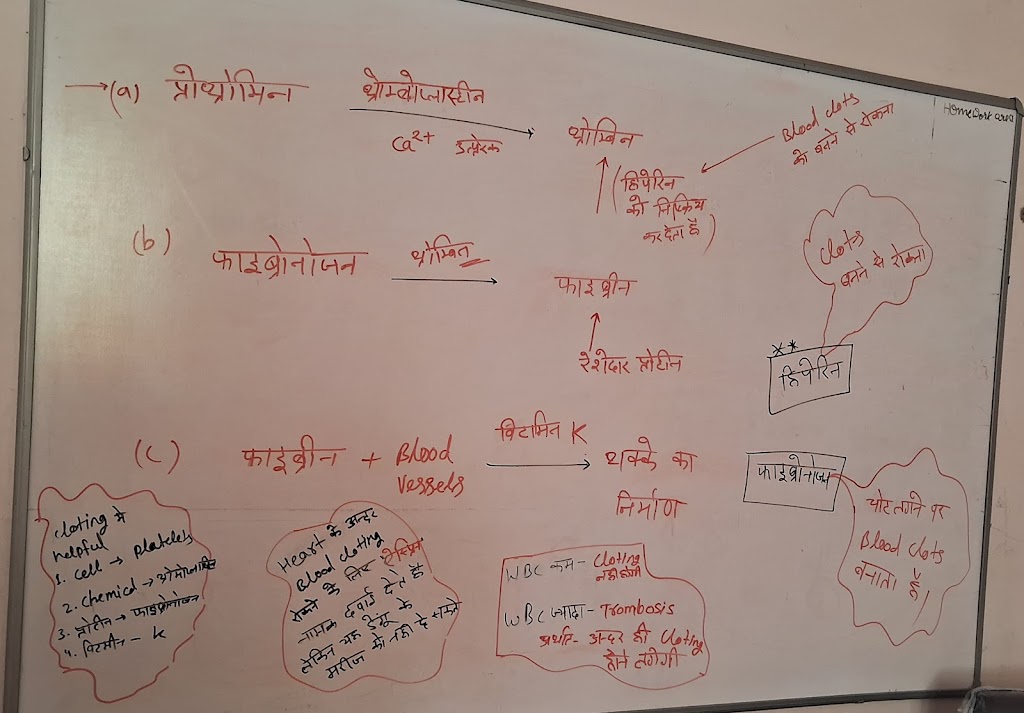 →(a) प्रोथ्रोमिन थ्रोम्बोप्लास्टीन
Ca2+ उत्प्रेरक
थ्रोम्बिन
(हिपेरिन
को निष्क्रिय
कर देता है)
Blood clots
को बनने से रोकना
HomeWork area
(b) फाइब्रोनोजन थ्रोम्बिन
फाइब्रीन
रेशेदार प्रोटीन
clots
बनने से रोकना
**
हिपेरिन
(c) फाइब्रीन + Blood
vessels
विटामिन K
थक्के का
निर्माण
फाइब्रोनोजन
चोट लगने पर
Blood clots
बनाता है।
cloting मे
helpful
1. cell → platelets
2. chemical →
3. प्रोटीन → फाइब्रोनोजन
4. विटमीन - K
Heart के अन्दर
Blood cloting
रोकने के लिए
नामक दवाई देते है
लेकिन यह डेंगू के
मरीज को नही दे सकते
WBC कम - Cloting
नही होगी
WBC ज्यादा - Trombosis
अर्थात- अन्दर ही Cloting
होने लगेगी